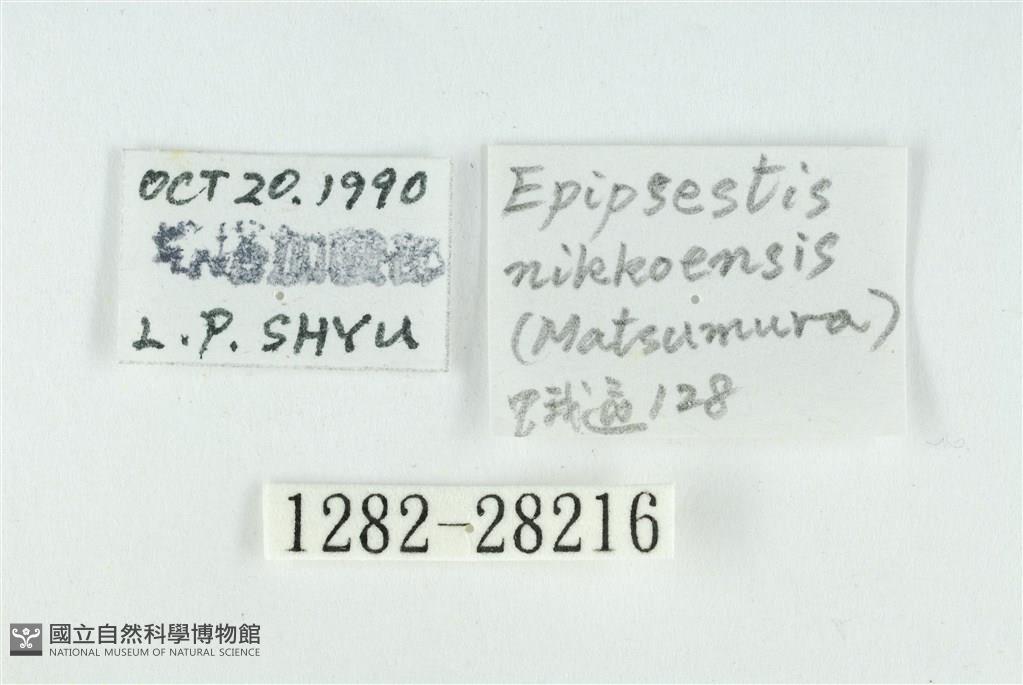 OCT 20. 1990
L. P. SHYU
Epipsestis
nikkoensis
(Matsumura)
128
1282-28216
國立自然科學博物館
NATIONAL MUSEUM OF NATURAL SCIENCE